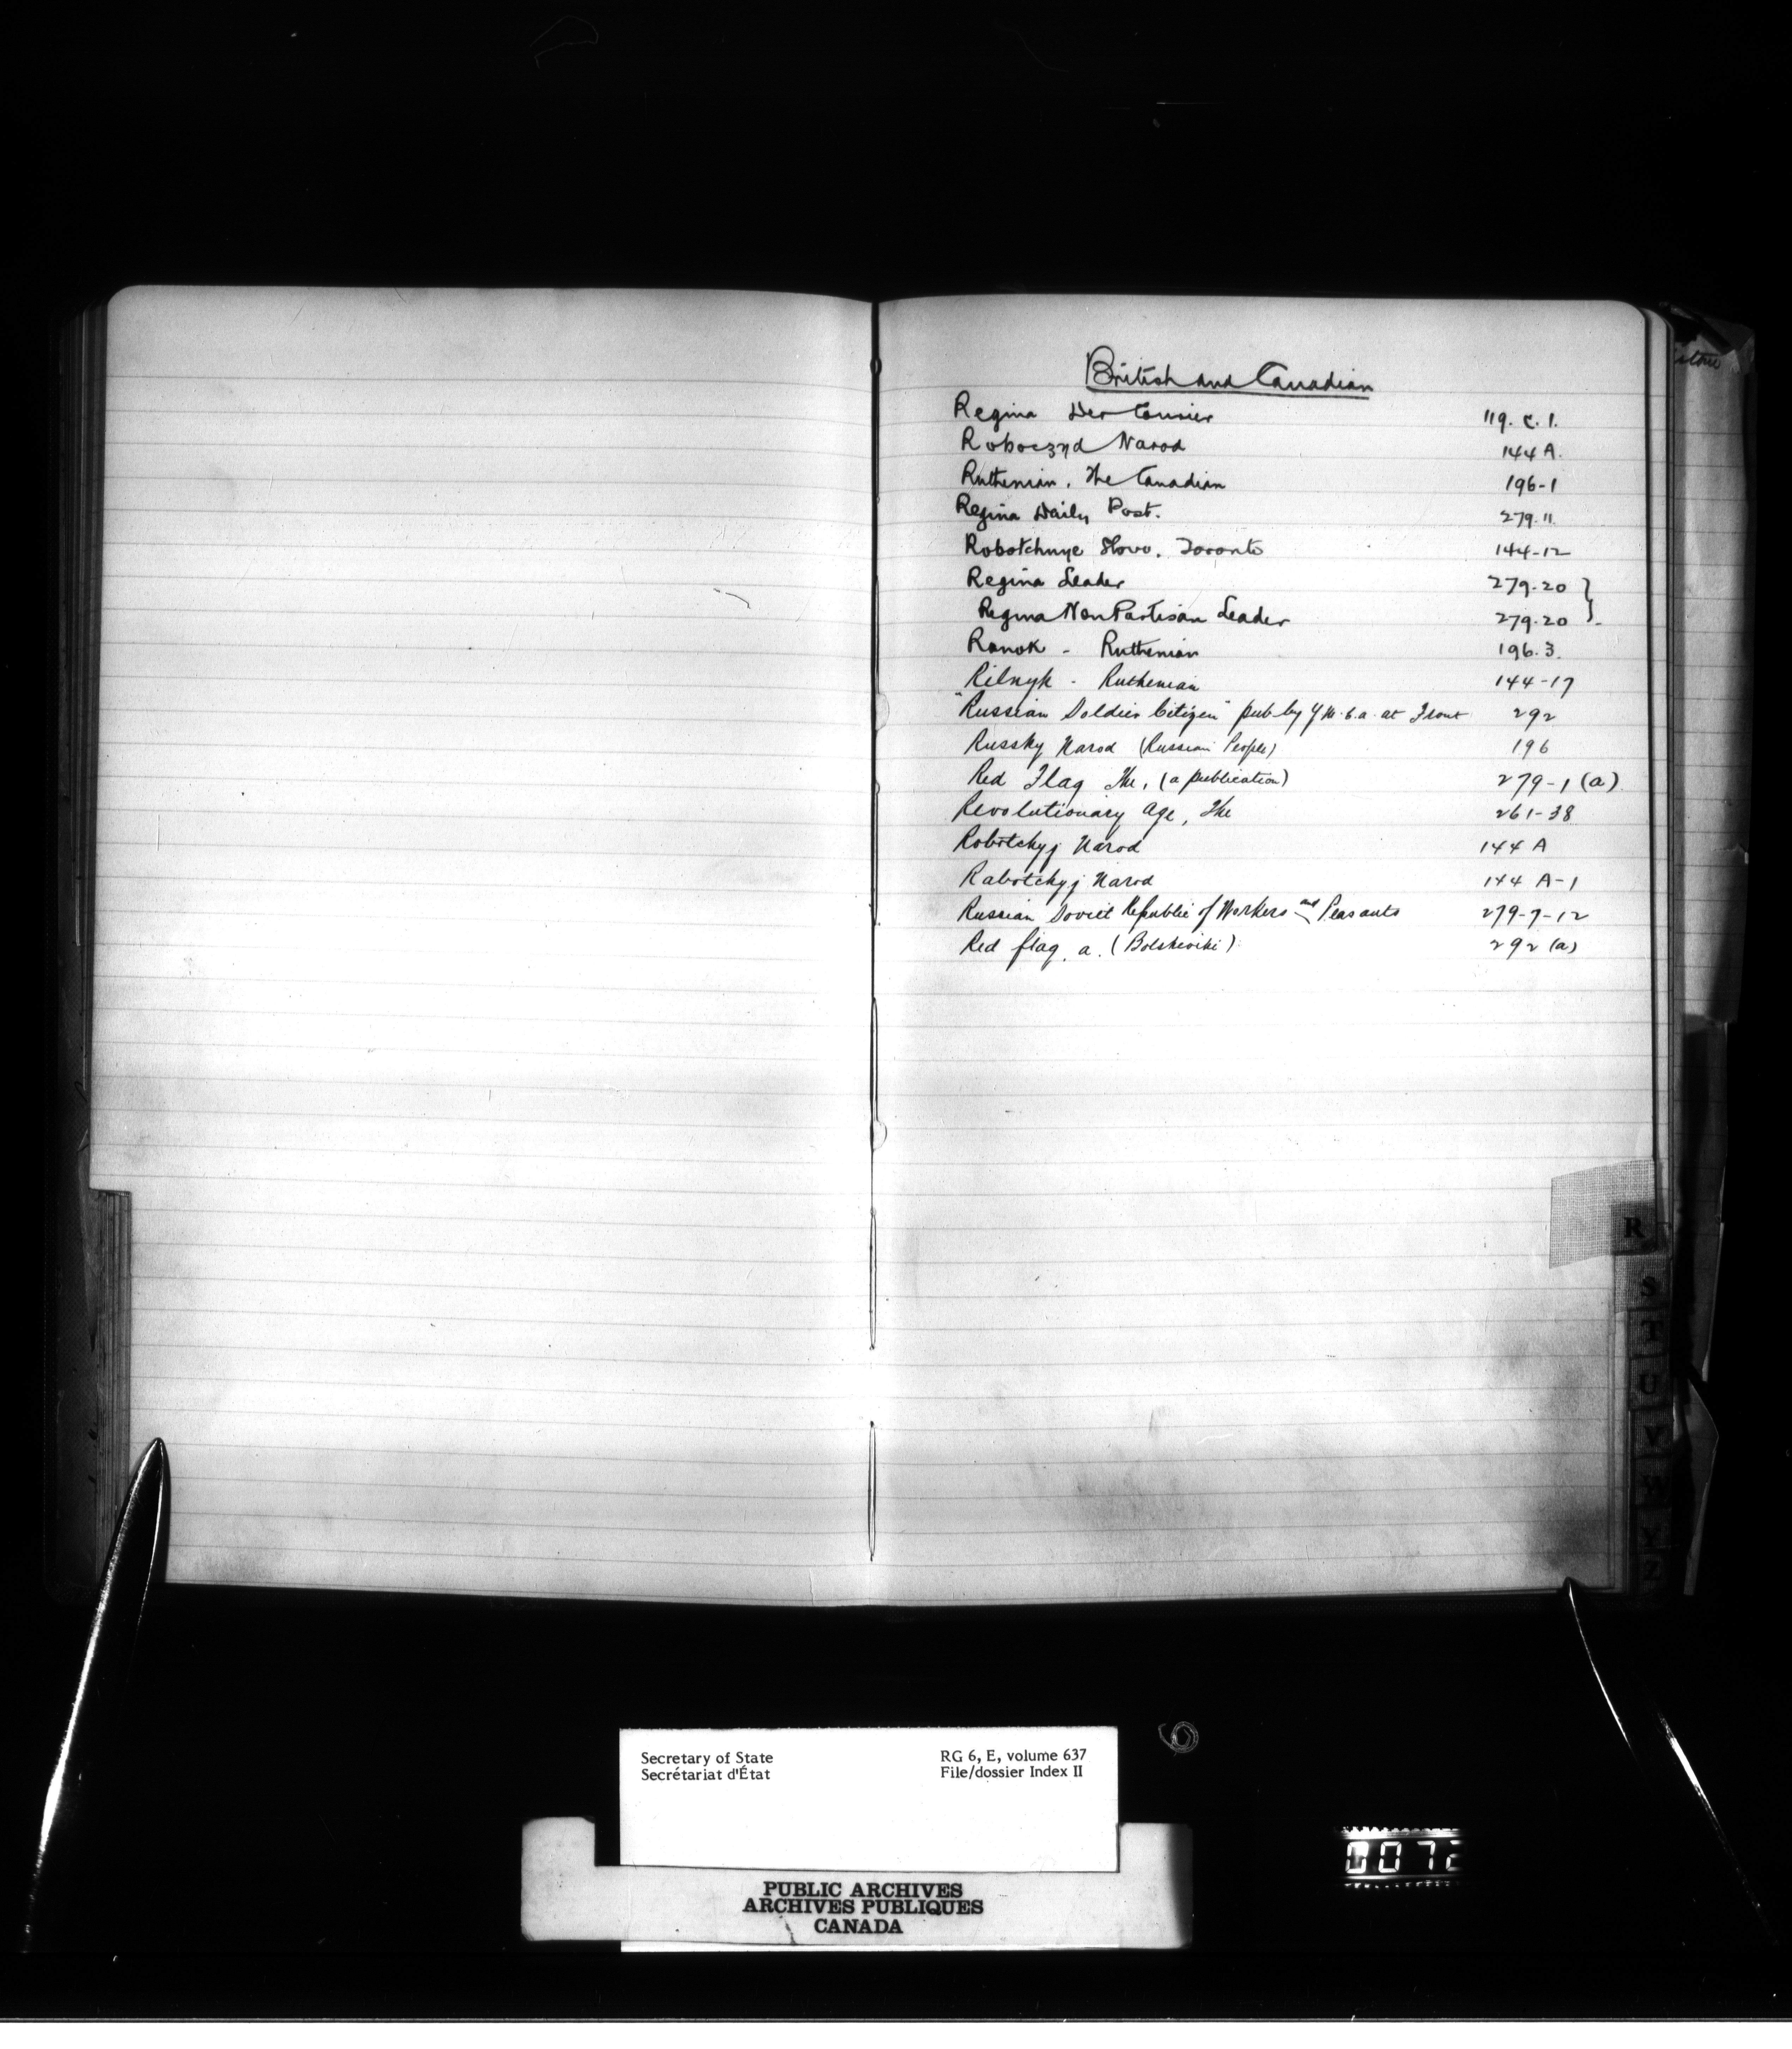 British and Canadian
Regina Der Courier 119. C. 1.
Roboczyd Narod 144 A.
Ruthenian, The Canadian 196-1
Regina Daily Post. 279.11
Robotchnye Slovo, Toronto 144-12
Regina Leader 279.20 }
Regina Non Partisan Leader 279.20 }
Ranok - Ruthenian 196.3.
Rilnyk - Ruthenian 144-17
"Russian Soldier Citizen" pub. by Y.M.C.A. at Front 292
Russky Narod (Russian People) 196
Red Flag The, (a publication) 279-1 (a)
Revolutionary Age, The 261-38
Robotchyj Narod 144 A
Rabotchyj Narod 144 A-1
Russian Soviet Republic of Workers and Peasants 279-7-12
Red flag, a. (Bolsheviki) 292 (a)
R
S
T
U
V
W
Y
Z
Secretary of State RG 6, E, volume 637
Secrétariat d'État File/dossier Index II
PUBLIC ARCHIVES
ARCHIVES PUBLIQUES
CANADA
0072